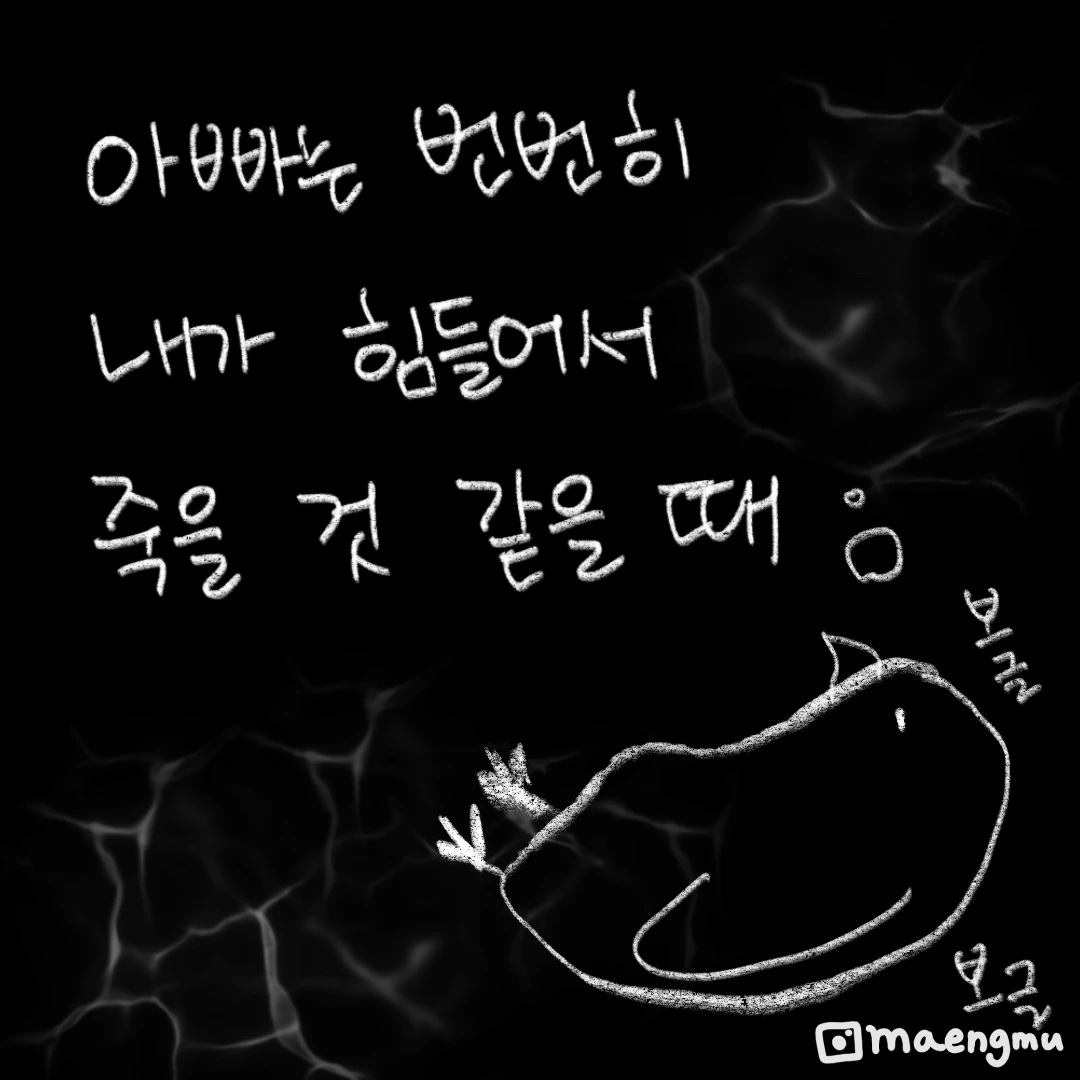 아빠는 번번히
내가 힘들어서
죽을 것 같을 때
뽀글
보글
maengmu